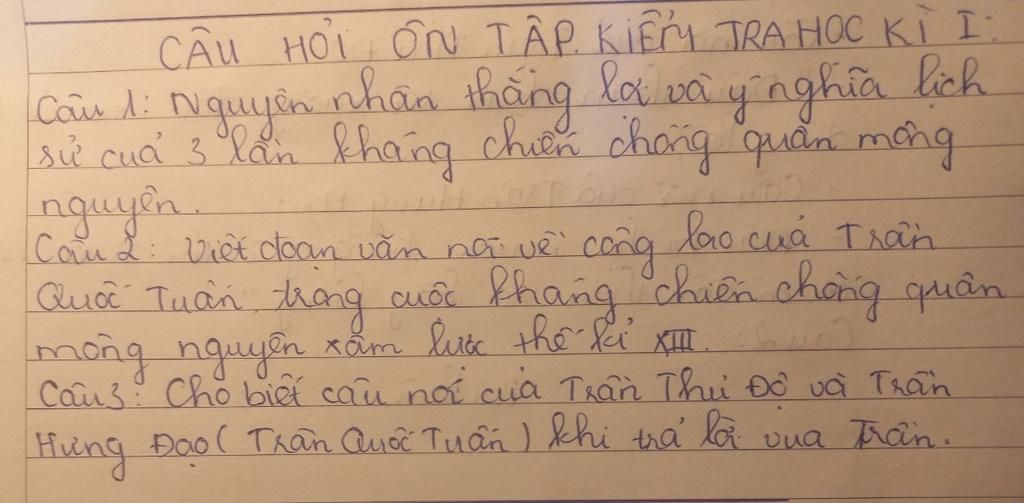 CÂU HỎI ÔN TẬP KIỂM TRA HỌC KÌ I:
Câu 1: Nguyên nhân thắng lợi và ý nghĩa lịch
sử của 3 lần kháng chiến chống quân mông
nguyên.
Câu 2: Viết đoạn văn nói về công lao của Trần
Quốc Tuấn trong cuộc kháng chiến chống quân
mông nguyên xâm lược thế kỉ XIII.
Câu 3: Cho biết câu nói của Trần Thủ Độ và Trần
Hưng Đạo (Trần Quốc Tuấn) khi trả lời vua Trần.